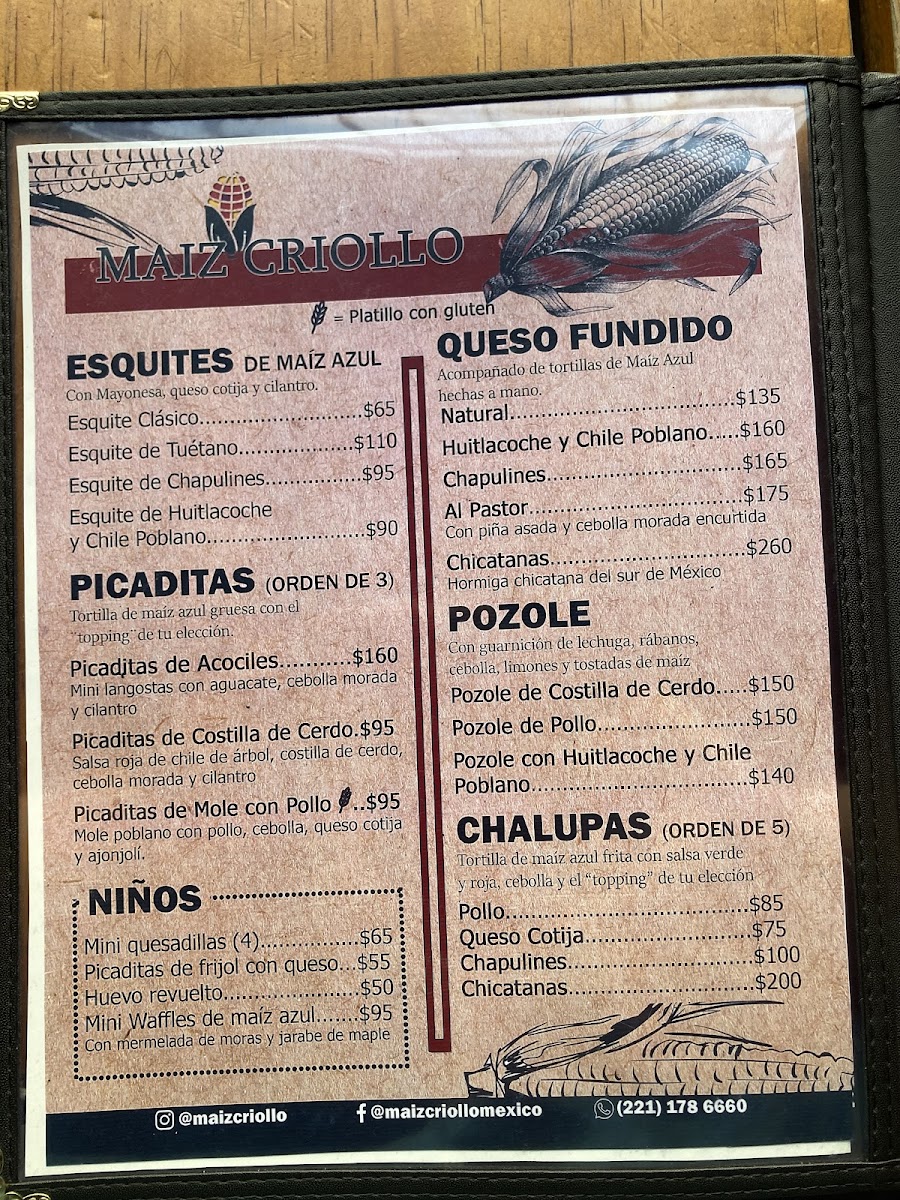 MAIZ CRIOLLO
= Platillo con gluten
ESQUITES DE MAÍZ AZUL
Con Mayonesa, queso cotija y cilantro.
Esquite Clásico............................$65
Esquite de Tuétano....................$110
Esquite de Chapulines................$95
Esquite de Huitlacoche
y Chile Poblano...........................$90
PICADITAS (ORDEN DE 3)
Tortilla de maíz azul gruesa con el
¨topping¨de tu elección.
Picaditas de Acociles............$160
Mini langostas con aguacate, cebolla morada
y cilantro
Picaditas de Costilla de Cerdo.$95
Salsa roja de chile de árbol, costilla de cerdo,
cebolla morada y cilantro
Picaditas de Mole con Pollo ..$95
Mole poblano con pollo, cebolla, queso cotija
y ajonjolí.
NIÑOS
Mini quesadillas (4).................$65
Picaditas de frijol con queso...$55
Huevo revuelto.......................$50
Mini Waffles de maíz azul.......$95
Con mermelada de moras y jarabe de maple
QUESO FUNDIDO
Acompañado de tortillas de Maíz Azul
hechas a mano.
Natural......................................$135
Huitlacoche y Chile Poblano.....$160
Chapulines.................................$165
Al Pastor....................................$175
Con piña asada y cebolla morada encurtida
Chicatanas.................................$260
Hormiga chicatana del sur de México
POZOLE
Con guarnición de lechuga, rábanos,
cebolla, limones y tostadas de maíz
Pozole de Costilla de Cerdo.....$150
Pozole de Pollo..........................$150
Pozole con Huitlacoche y Chile
Poblano.....................................$140
CHALUPAS (ORDEN DE 5)
Tortilla de maíz azul frita con salsa verde
y roja, cebolla y el “topping” de tu elección
Pollo.........................................$85
Queso Cotija............................$75
Chapulines................................$100
Chicatanas................................$200
@maizcriollo @maizcriollomexico (221) 178 6660